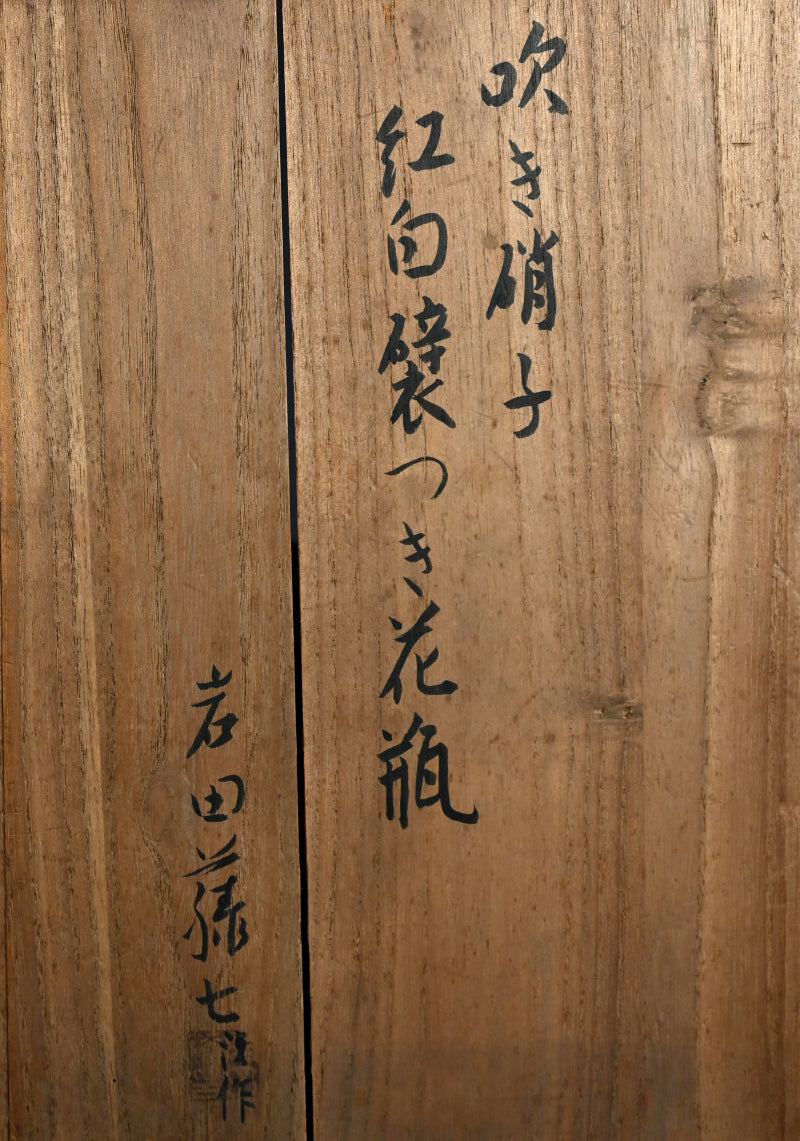 吹き硝子
紅白襞つき花瓶
岩田藤七謹作